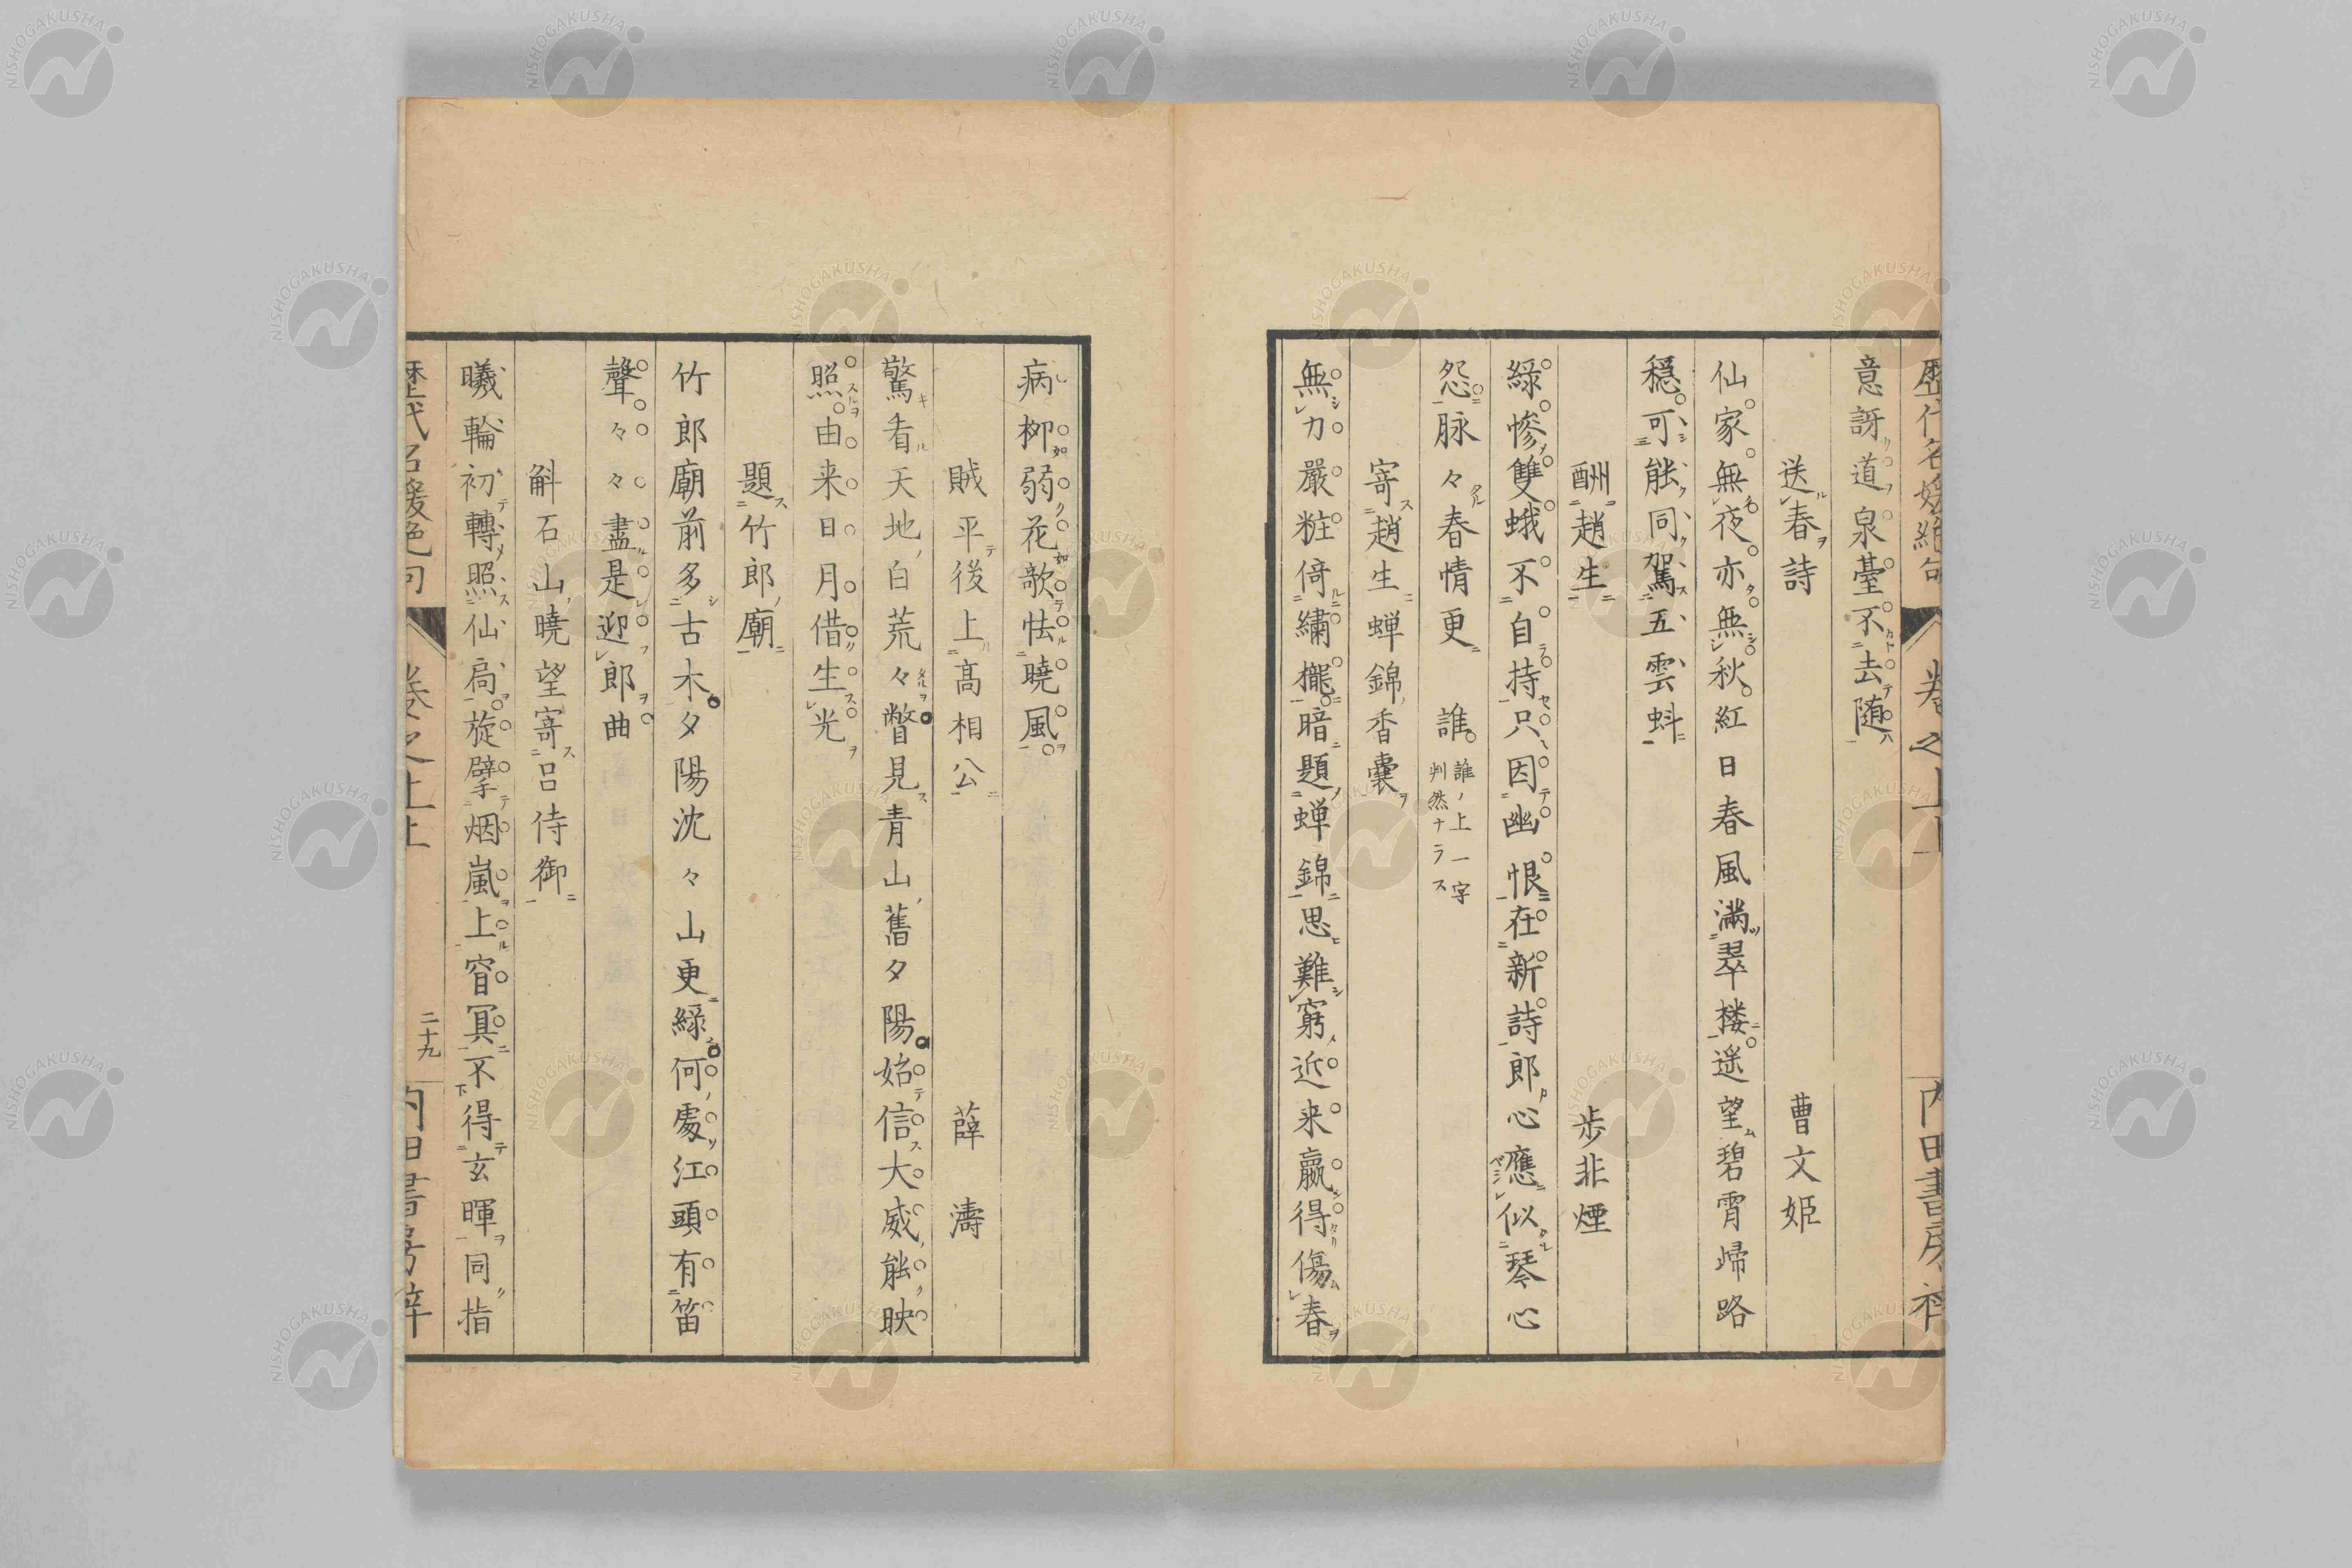 歴代名媛絶句 卷之上上 内田書房梓
意訝道泉臺不去随
送春詩 曹文姫
仙家無夜亦無秋紅日春風滿翠楼遥望碧霄帰路
穏可能同駕五雲虯
酬趙生 歩非煙
緑惨雙蛾不自持只因幽恨在新詩郎心應似琴心
怨脉々春情更 誰 誰ノ上一字判然ナラス
寄趙生蝉錦香囊
無力嚴粧倚繡櫳暗題蝉錦思難窮近来羸得傷春
病柳弱花歌怯曉風
賊平後上髙相公 薛濤
驚看天地白荒々瞥見青山舊夕陽始信大威能映
照由来日月借生光
題竹郎廟
竹郎廟前多古木夕陽沈々山更緑何處江頭有笛
聲々々盡是迎郎曲
斛石山曉望寄呂侍御
曦輪初轉照仙扃旋擘烟嵐上窅冥不得玄暉同指
歴代名媛絶句 卷之上上 二十九 内田書房梓
NISHOGAKUSHA